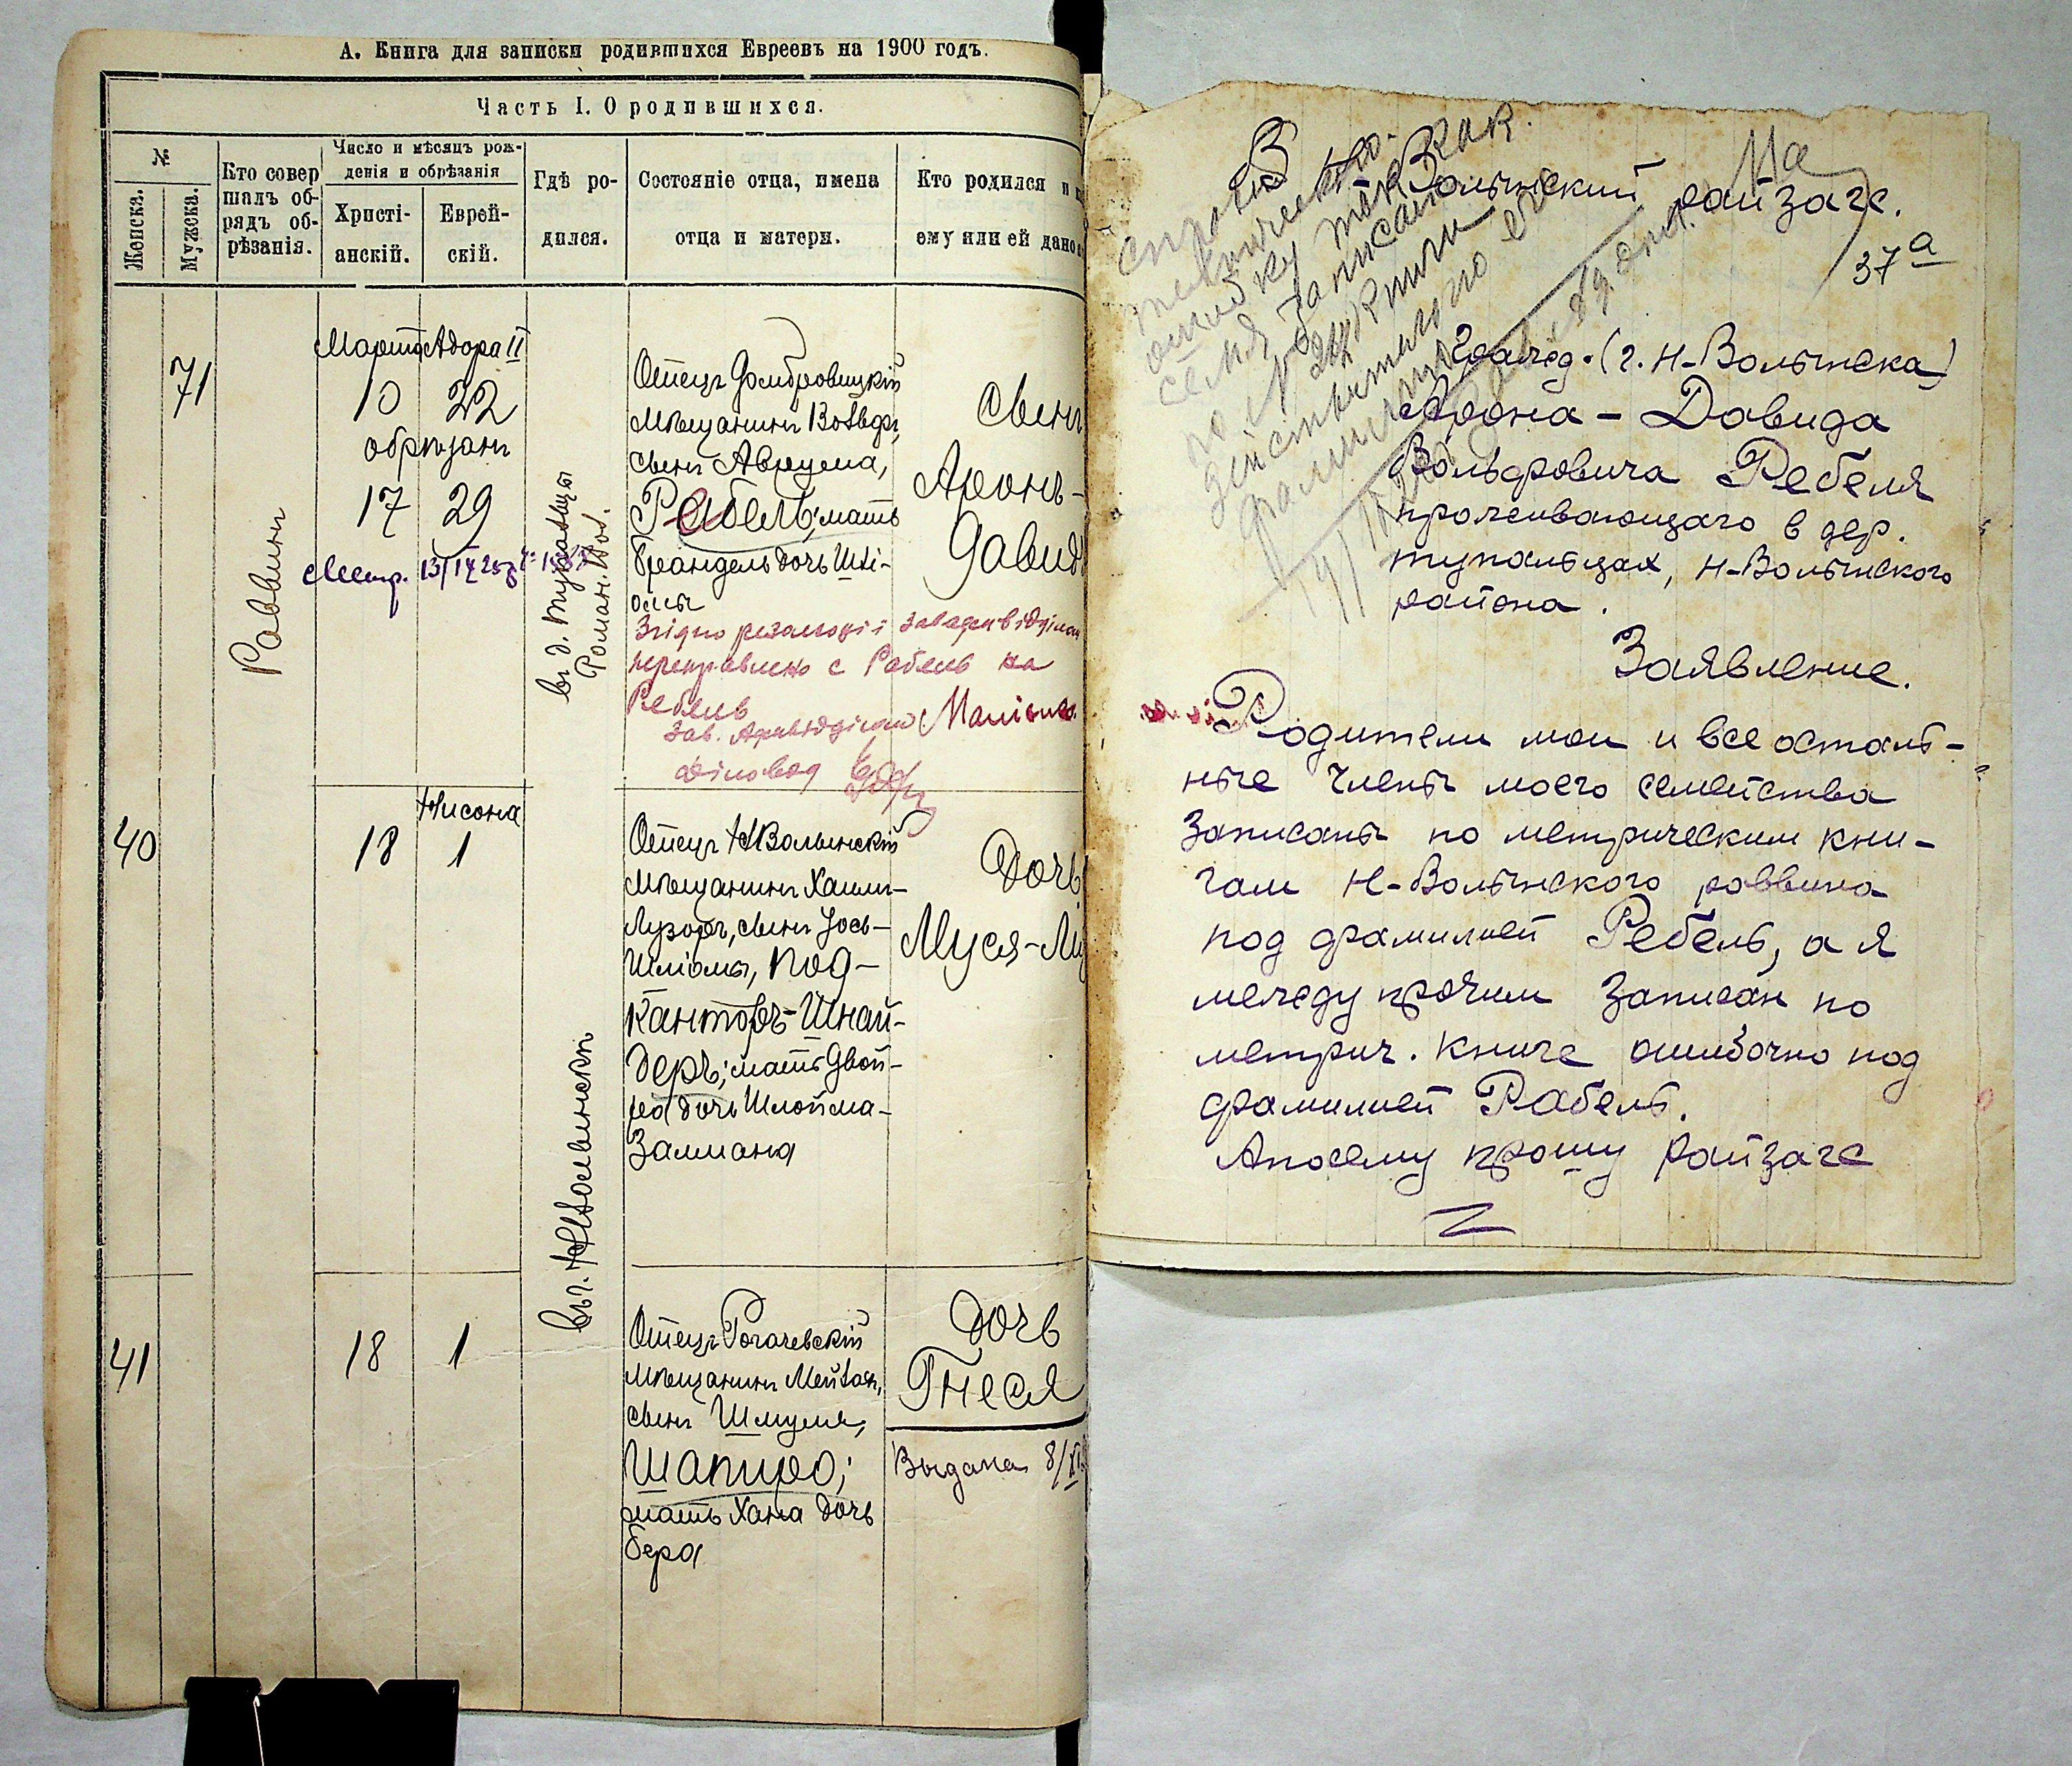 А. Книга для записки родившихся Евреевъ на 1900 годъ.
Часть I. О родившихся.
№
Женска.
Мужска.
Кто совер
шалъ об-
рядъ об-
рѣзанія.
Число и мѣсяцъ рож-
денія и обрѣзанія
Христі-
анскій.
Еврей-
скій.
Гдѣ ро-
дился.
Состояніе отца, имена
отца и матери.
Кто родился и
ему или ей дано
71
Раввинъ
Мартъ Адара II
10 22
обрѣзанъ
17 29
въ д. Тупальцы
Роман. Вол.
Отецъ Домбровицкій
мѣщанинъ Вольфъ,
сынъ Аврума,
Ребель; мать
Брандель дочь Шлі-
омы
Сынъ
Аронъ-
Давид
Згідно резолюціі завадмвідділом
переправлено с Рабель на
Ребель
Зав. Адмвідділом
діловод
40
Нисона
18 1
въ г. НВолынскѣ
Отецъ НВолынскій
мѣщанинъ Хаим-
Лузоръ, сынъ Іось-
Шліомы, Под-
канторъ-Шнай-
деръ; мать Двой-
ра дочь Шлойма-
Залмана
Дочь
Муся-
41
18 1
Отецъ Рогачевскій
мѣщанинъ
сынъ Шмуля,
Шапиро;
мать Хана дочь
Бера
Дочь
Гнеся
Выдана 8/XI
В Н-Волынский райзагс.
37а
Гражд. (г. Н-Волынска)
Арона - Давида
Вольфовича Ребеля
проживающаго в дер.
тупальцах, Н-Волынского
района.
Заявление.
Родители мои и все осталь-
ные члены моего семейства
записаны по метрическим кни-
гам Н-Волынского раввина
под фамилией Ребель, а я
между прочим записан по
метрич. книге ошибочно под
фамилией Рабель.
Апосему прошу райзагс